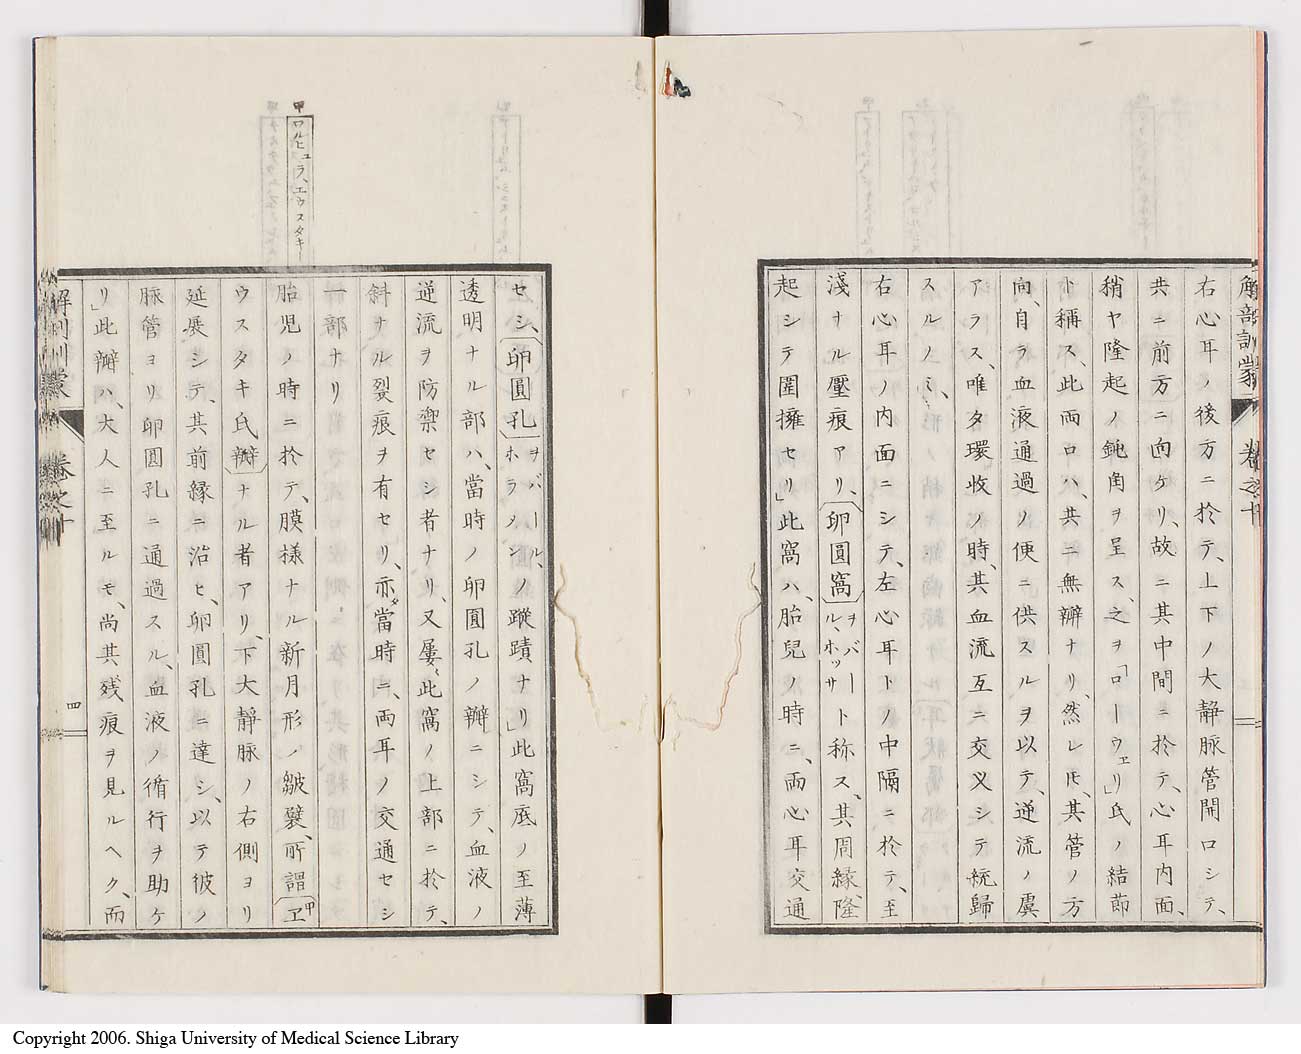 解剖訓蒙 卷之十
右心耳ノ後方ニ於テ、上下ノ大静脈管開口シテ、
共ニ前方ニ向ケリ、故ニ其中間ニ於テ、心耳内面、
稍ヤ隆起ノ鈍角ヲ呈ス、之ヲ「ローウェリ」氏ノ結節
ト稱ス、此両口ハ、共ニ無瓣ナリ、然レ𪜈、其管ノ方
向、自ラ血液通過ノ便ニ供スルヲ以テ、逆流ノ虞
アラス、唯タ環收ノ時、其血流互ニ交叉シテ統歸
スルノミ、
右心耳ノ内面ニシテ、左心耳トノ中隔ニ於テ、至
淺ナル壓痕アリ、卵圓窩ヲバールホッサト称ス、其周縁、隆
起シテ圍擁セリ」此窩ハ、胎兒ノ時ニ、両心耳交通
セシ、卵圓孔ヲバール、ホラメンノ蹤蹟ナリ」此窩底ノ至薄
透明ナル部ハ、當時ノ卵圓孔ノ瓣ニシテ、血液ノ
逆流ヲ防禦セシ者ナリ、又屢〻此窩ノ上部ニ於テ、
斜ナル裂痕ヲ有セリ、亦タ當時ニ、両耳ノ交通セシ
一部ナリ
胎児ノ時ニ於テ、膜様ナル新月形ノ皺襞、所謂ヱ
甲 ワルヒュラ、エウスタキー
ウスタキ氏瓣ナル者アリ、下大靜脈ノ右側ヨリ
延展シテ、其前緣ニ沿ヒ、卵圓孔ニ達シ、以テ彼ノ
脉管ヨリ卵圓孔ニ通過スル、血液ノ循行ヲ助ケ
リ」此瓣ハ、大人ニ至ルモ、尚其残痕ヲ見ルヘク、而
解剖訓蒙 卷之十
四
Copyright 2006. Shiga University of Medical Science Library